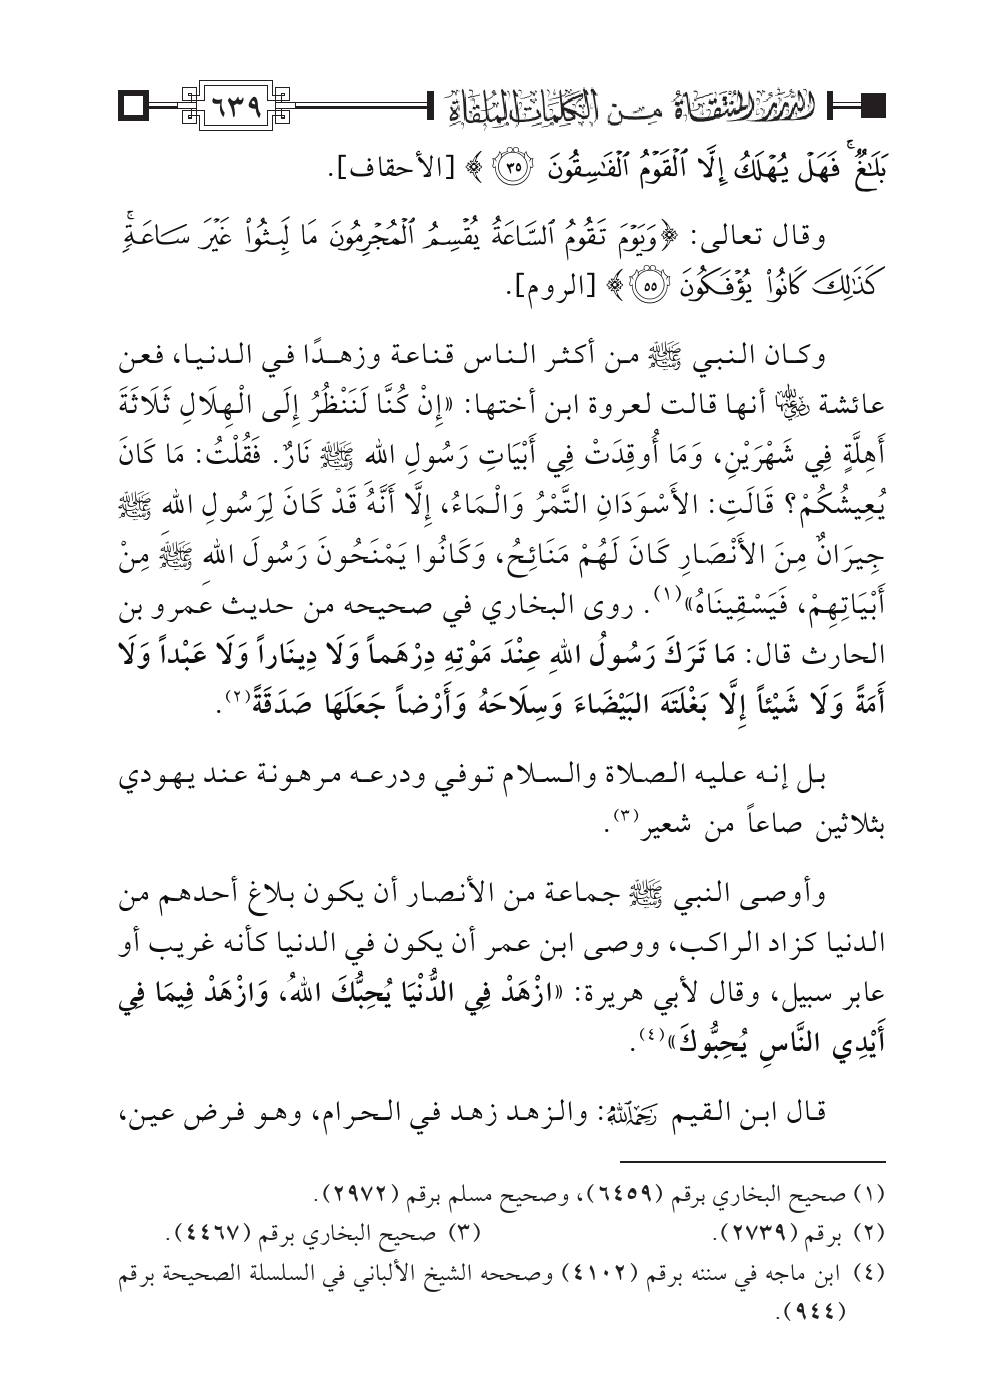 الدرر المنتقاة من الكلمات الملقاة ٦٣٩
بَلَاغٌ ۚ فَهَلْ يُهْلَكُ إِلَّا الْقَوْمُ الْفَاسِقُونَ ﴿٣٥﴾ ﴾ [الأحقاف].
وقال تعالى: ﴿وَيَوْمَ تَقُومُ السَّاعَةُ يُقْسِمُ الْمُجْرِمُونَ مَا لَبِثُوا غَيْرَ سَاعَةٍ ۚ
كَذَٰلِكَ كَانُوا يُؤْفَكُونَ ٥٥﴾ [الروم].
وكان النبي ﷺ من أكثر الناس قناعة وزهدًا في الدنيا، فعن
عائشة رضي الله عنها أنها قالت لعروة ابن أختها: «إِنْ كُنَّا لَنَنْظُرُ إِلَى الْهِلَالِ ثَلَاثَةَ
أَهِلَّةٍ فِي شَهْرَيْنِ، وَمَا أُوقِدَتْ فِي أَبْيَاتِ رَسُولِ اللهِ ﷺ نَارٌ. فَقُلْتُ: مَا كَانَ
يُعِيشُكُمْ؟ قَالَتِ: الأَسْوَدَانِ التَّمْرُ وَالْمَاءُ، إِلَّا أَنَّهُ قَدْ كَانَ لِرَسُولِ اللهِ ﷺ
جِيرَانٌ مِنَ الأَنْصَارِ كَانَ لَهُمْ مَنَائِحُ، وَكَانُوا يَمْنَحُونَ رَسُولَ اللهِ ﷺ مِنْ
أَبْيَاتِهِمْ، فَيَسْقِينَاهُ»(١). روى البخاري في صحيحه من حديث عَمرو بن
الحارث قال: مَا تَرَكَ رَسُولُ اللهِ عِنْدَ مَوْتِهِ دِرْهَماً وَلَا دِينَاراً وَلَا عَبْداً وَلَا
أَمَةً وَلَا شَيْئاً إِلَّا بَغْلَتَهَ البَيْضَاءَ وَسِلَاحَهُ وَأَرْضاً جَعَلَهَا صَدَقَةً(٢).
بل إنه عليه الصلاة والسلام توفي ودرعه مرهونة عند يهودي
بثلاثين صاعاً من شعير(٣).
وأوصى النبي ﷺ جماعة من الأنصار أن يكون بلاغ أحدهم من
الدنيا كزاد الراكب، ووصى ابن عمر أن يكون في الدنيا كأنه غريب أو
عابر سبيل، وقال لأبي هريرة: «ازْهَدْ فِي الدُّنْيَا يُحِبُّكَ اللهُ، وَازْهَدْ فِيمَا فِي
أَيْدِي النَّاسِ يُحِبُّوكَ»(٤).
قال ابن القيم رحمه الله: والزهد زهد في الحرام، وهو فرض عين،
(١) صحيح البخاري برقم (٦٤٥٩)، وصحيح مسلم برقم (٢٩٧٢).
(٢) برقم (٢٧٣٩). (٣) صحيح البخاري برقم (٤٤٦٧).
(٤) ابن ماجه في سننه برقم (٤١٠٢) وصححه الشيخ الألباني في السلسلة الصحيحة برقم
(٩٤٤).